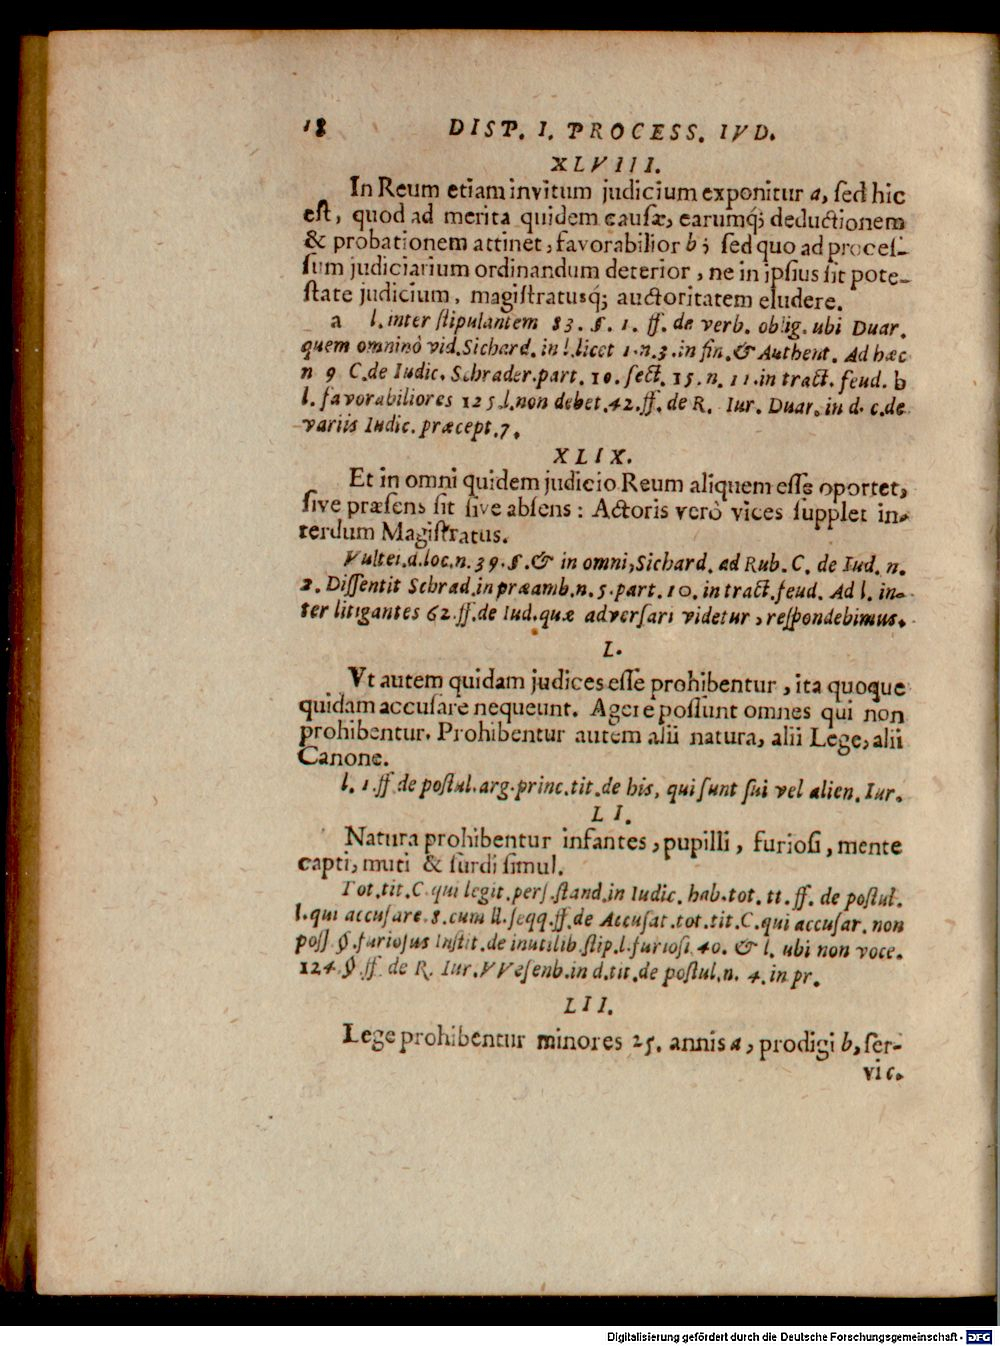 18 DIST. I. PROCESS. IVD.
XLVIII.
In Reum etiam invitum judicium exponitur a, sed hic
est, quod ad merita quidem causæ, earumq́; deductionem
& probationem attinet, favorabilior b; sed quo ad proces-
sum judiciarium ordinandum deterior, ne in ipsius sit pote-
state judicium, magistratusq́; auctoritatem eludere.
a l. inter stipulantem 83. §. 1. ff. de verb. oblig. ubi Duar.
quem omninò vid. Sichard. in l. licet 1. n. 3. in fin. & Authent. Ad hæc
n 9 C. de Iudic. Schrader. part. 10. sect. 15. n. 11. in tract. feud. b
l. favorabiliores 125. l. non debet. 42. ff. de R. Iur. Duar. in d. c. de
variis Iudic. præcept. 7.
XLIX.
Et in omni quidem judicio Reum aliquem esse oportet,
sive præsens sit sive absens: Actoris verò vices supplet in-
terdum Magistratus.
Vultei. d. loc. n. 39. §. & in omni, Sichard. ad Rub. C. de Iud. n.
2. Dissentit Schrad. in præamb. n. 5. part. 10. in tract. feud. Ad l. in-
ter litigantes 62. ff. de Iud. quæ adversari videtur, respondebimus.
L.
Vt autem quidam judices esse prohibentur, ita quoque
quidam accusare nequeunt. Agere possunt omnes qui non
prohibentur. Prohibentur autem alii natura, alii Lege, alii
Canone.
l. 1. ff de postul. arg. princ. tit. de his, qui sunt sui vel alien. Iur.
LI.
Natura prohibentur infantes, pupilli, furiosi, mente
capti, muti & surdi simul.
Tot. tit. C. qui legit. pers. stand. in Iudic. hab. tot. tt. ff. de postul.
l. qui accusare. 8. cum ll. seqq. ff. de Accusat. tot. tit. C. qui accusar. non
poss §. furiosus Instit. de inutilib. stip. l. furiosi. 40. & l. ubi non voce.
124. §. ff. de R. Iur. VVesenb. in d. tit. de postul. n. 4. in pr.
LII.
Lege prohibentur minores 25. annis a, prodigi b, ser-
vi c.
Digitalisierung gefördert durch die Deutsche Forschungsgemeinschaft - DFG